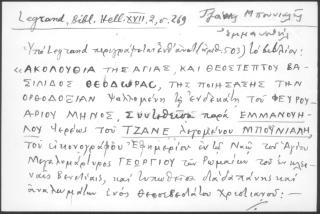 Legrand, Bibl. Hell. XVII, 2, σ. 269 Τζάνες Μπουνιαλῆς
Ἐμμανουὴλ
Ὑπὸ Legrand περιγράφεται (ἀριθ. 503) τὸ βιβλίον:
«ΑΚΟΛΟΥΘΙΑ ΤΗΣ ΑΓΙΑΣ, ΚΑΙ ΘΕΟΣΤΕΠΤΟΥ ΒΑ-
ΣΙΛΙΔΟΣ ΘΕΟΔΩΡΑΣ, ΤΗΣ ΠΟΙΗΣΑΣΗΣ ΤΗΝ
ΟΡΘΟΔΟΞΙΑΝ Ψαλλομένη τῇ ἑνδεκάτῃ τοῦ ΦΕΥΡΟΥ-
ΑΡΙΟΥ ΜΗΝΟΣ, Συντεθεῖσα παρὰ ΕΜΜΑΝΟΥΗ-
ΛΟΥ Ἱερέως τοῦ ΤΖΑΝΕ λεγομένου ΜΠΟΥΝΙΑΛΗ,
τοῦ εἰκονογράφου Ἐφημερίου ἐν τῷ Ναῷ τοῦ Ἁγίου
Μεγαλομάρτυρος ΓΕΩΡΓΙΟΥ τῶν Ῥωμαίων τοῦ ἐν κλει-
ναῖς Βενετίαις, καὶ τυπωθεῖσα διὰ δαπάνης καὶ
ἀναλωμάτων ἑνὸς θεοσεβεστάτου Χριστιανοῦ:—